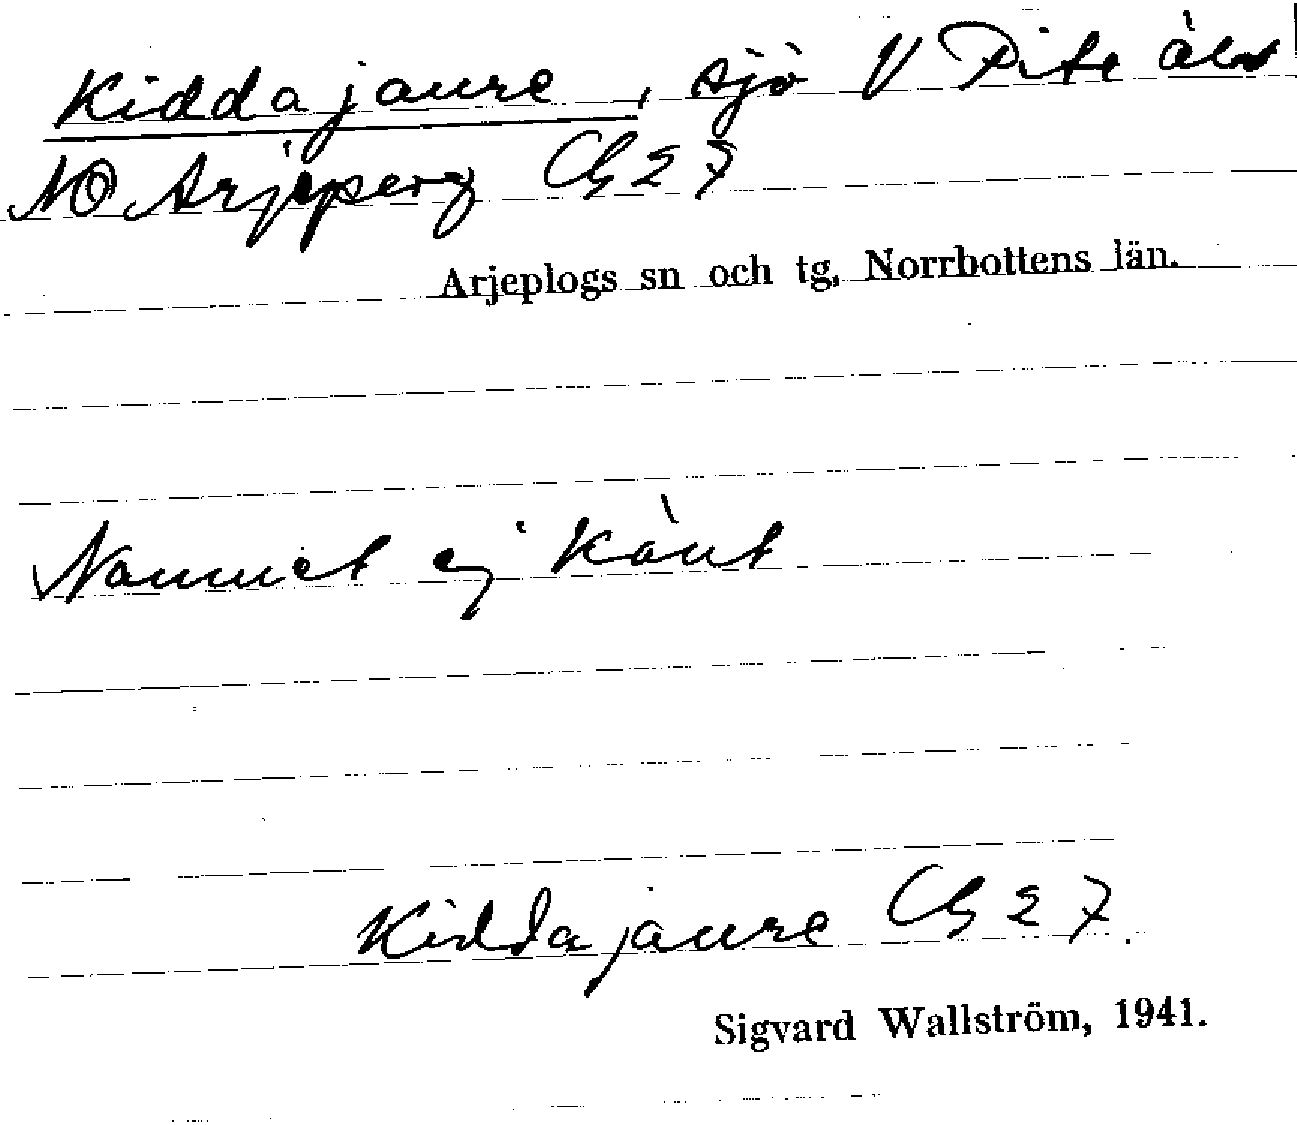 Kiddajaure, sjö V Pite älv
NO Arjeperg CG 27
Arjeplogs sn och tg, Norrbottens län.
Namnet ej känt
Kiddajaure CG 27.
Sigvard Wallström, 1941.